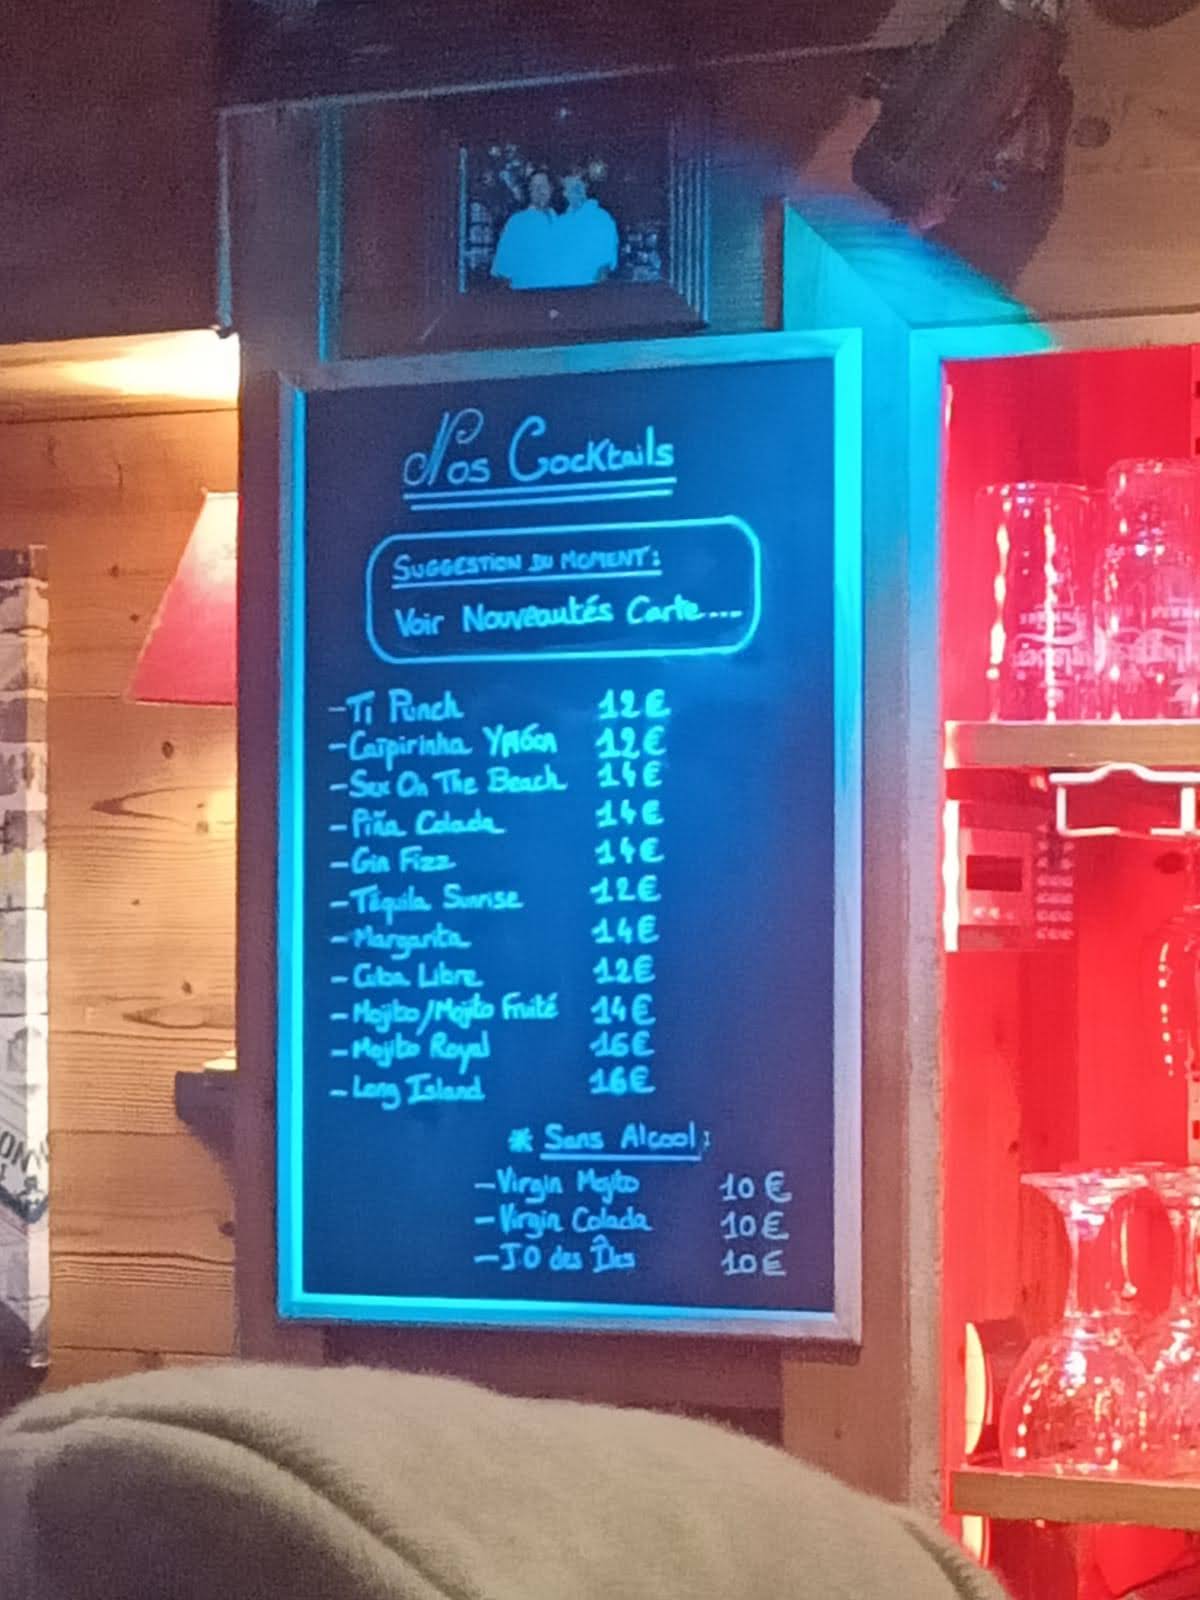 Nos Cocktails
SUGGESTION DU MOMENT:
Voir Nouveautés Carte....
-Ti Punch 12€
-Caïpirinha YPIÓCA 12€
-Sex On The Beach 14€
-Piña Colada 14€
-Gin Fizz 14€
-Téquila Sunrise 12€
-Margarita 14€
-Cuba Libre 12€
-Mojito/Mojito Fruité 14€
-Mojito Royal 16€
-Long Island 16€
* Sans Alcool:
-Virgin Mojito 10€
-Virgin Colada 10€
-JO des Îles 10€